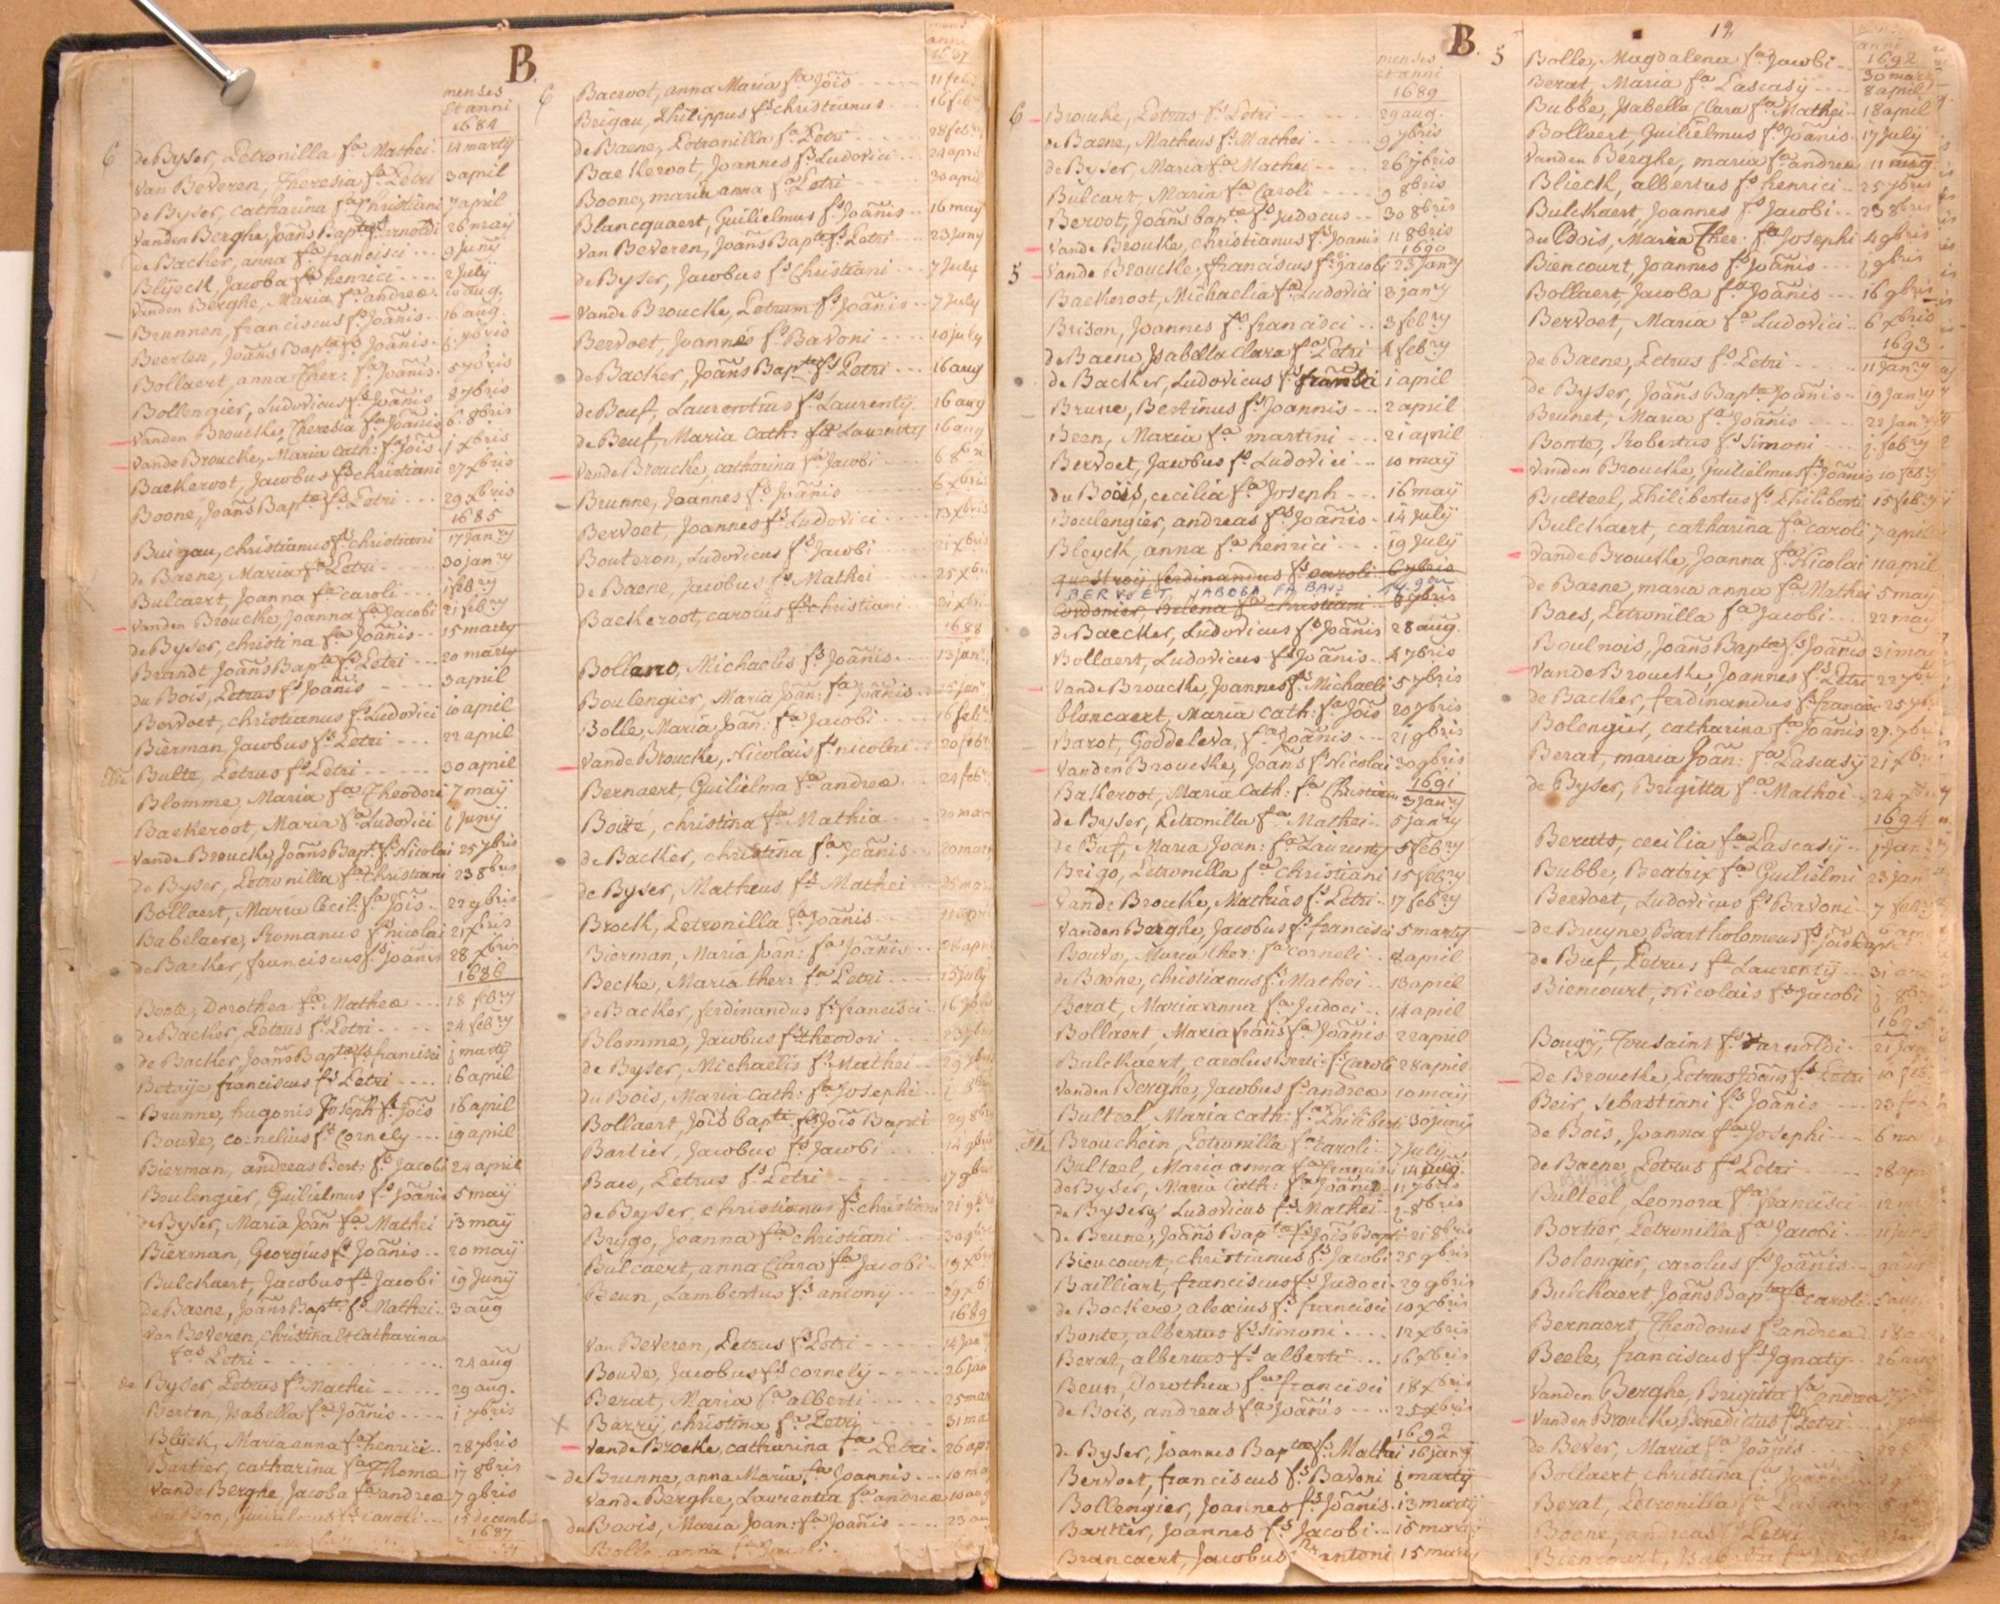 B.
menses
et anni
1684
6 de Byser, Petronilla fa Mathei 14 martÿ
Van Beveren, Theresia fa Petri 3 april
de Byser, catharina fa christiani 7 april
Vanden Berghe, Joans Bapta fs Arnoldi 26 maÿ
de Backer, anna fa francisci 9 Junÿ
Blÿeck, Jacoba fa henrici 2 Julÿ
Vanden Berghe, Maria fa andreæ 10 aug.
Brunnen, franciscus fs Joãnis 16 aug.
Beerten, Joans Bapta fs Joãnis 6 7bris
Bollaert, anna Ther: fa Joãnis 5 7bris
Bollengier, Ludovicus fs Joãnis 8 7bris
Vanden Broucke, Theresia fa Joãnis 6 8bris
Vande Broucke, Maria Cath: fa Joĩs 1 xbris
Backeroot, Jacobus fs christiani 27 xbris
Boone, Joans Bapte fs Petri 29 xbris
1685
Buigau, christianus fs christiani 17 Janry
de Baene, Maria fa Petri 30 janry
Bulcaert, Joanna fa caroli 1 febry
Vanden Broucke, Joanna fa Jacobi 21 febry
de Byser, christina fa Joãnis 15 marty
Brandt Joans Bapte fs Petri 20 marty
du Bois, Petrus fs Joãnis 3 april
Bervoet, christianus fs Ludovici 10 april
Bierman, Jacobus fs Petri 22 april
Bulte, Petrus fs Petri 30 april
Blomme, Maria fa Theodori 7 maÿ
Backeroot, Maria fa Ludovici 1 Junÿ
Vande Broucke, Joans Bapt. fs Nicolai 25 7bris
de Byser, Petronilla fa Christiani 23 8bris
Bollaert, Maria Cecil: fa Joĩs 22 9bris
Babelaere, Romanus fs nicolai 21 xbris
de Backer, franciscus fs Joãnis 28 xbris
1686
Bonte, Dorothea fa Matheæ 18 febry
de Backer, Petrus fs Petri 24 febry
de Backer, Joans Bapta fs francisci 1 martÿ
Betrÿe franciscus fs Petri 16 april
Brunne, hugonis Joseph fs Joĩs 16 april
Boude, cornelius fs Cornely 19 april
Bierman, andreas Bert: fs Jacobi 24 april
Boulengier, Guilielmus fs Joãnis 5 maÿ
de Byser, Maria Joãn fa Mathei 13 maÿ
Bierman, Georgius fs Joãnis 20 maÿ
Bulckaert, Jacobus fs Jacobi 19 Junÿ
de Baene, Joans Bapte fs Mathei 3 aug
Van Beveren, christina et Catharina
fas Petri 24 aug
de Byser, Petrus fs Mathei 29 aug.
Berten, Isabella fa Joãnis 1 7bris
Blieck, Maria anna fa henrici 28 7bris
Bartier, catharina fa Thomæ 17 8bris
Vande Berghe, Jacoba fa andreæ 7 9bris
1687
6 Baeroot, anna Maria fa Joĩs 11 feb
Brigau, Philippus fs christianus 16 feb
de Baene, Petronilla fa Petri 28 feb
Backeroot, Joannes fs Ludovici 24 april
Boone, maria anna fa Petri 30 april
Blancquaert, Guilielmus fs Joãnis 16 maÿ
Van Beveren, Joans Bapta fs Petri 23 Juny
de Byser, Jacobus fs Christiani 7 July
Vande Broucke, Petrum fs Joãnis 7 July
Bervoet, Joannes fs Bavoni 10 july
de Backer, Joans Bapte fs Petri 16 aug
de Beuf, Laurentius fs Laurenty 16 aug
de Beuf, Maria Cath: fa Laurenty 16 aug
Vande Broucke, catharina fa Jacobi 6 8b
Brunne, Joannes fs Joãnis 6 xbris
Bervoet, Joannes fs Ludovici 13 xbris
Bouteron, Ludovicus fs Jacobi 21 xbris
de Baene, Jacobus fs Mathei 25 xb
Backeroot, carolus fs christiani 21 xb
1688
Bollaro, Michaelis fs Joãnis 13 jan
Boulengier, Maria Joãn: fa Joãnis jan
Bolle, Maria Joan: fa Jacobi 16 feb
Vande Broucke, Nicolais fs nicolai 20 feb
Bernaert, Guilielma fa andreæ 28 feb
Boite, christina fa Mathia 20 mar
de Backer, christina fa Joãnis 20 mar
de Byser, Matheus fs Mathei 25 mar
Brock, Petronilla fa Joãnis
Bierman, Maria Joãn: fa Joãnis april
Becke, Maria ther: fa Petri 15 july
de Backer, ferdinandus fs francisci 16
Blomme, Jacobus fs theodori 23
de Byser, Michaelis fs Mathei 29 7bris
du Bois, Maria Cath: fa Josephi 1 8b
Bollaert, Joĩs Bapte fs Joĩs Bapti 29 8b
Bartier, Jacobus fs Jacobi 14 9bris
Baes, Petrus fs Petri 17 9b
de Byser, christianus fs christiani 21 9b
Brigo, Joanna fa christiani 30 9b
Bulcaert, anna Clara fa Jacobi 19 xb
Beun, Lambertus fs antony 29 xb
1689
Van Beveren, Petrus fs Petri 14 Jan
Boude, Jacobus fs cornely 26 jan
Berat, Maria fa alberti 25 mar
x Barrÿ, christina fa Petri 31 ma
Vande Brocke, catharina fa Petri 26 apr
de Brunne, anna Maria fa Joannis 10 ma
Vande Berghe, Laurentia fa andreæ 10 aug
du Boois, Maria Joan: fa Joãnis 23 au
B.
menses
et anni
1689
6 Broucke, Petrus fs Petri 29 aug.
de Baene, Matheus fs Mathei 9 7bris
de Byser, Maria fa Mathei 26 7bris
Bulcart, Maria fa Caroli 9 8bris
Bervot, Joans Bapte fs Judocus 30 8bris
Vande Broucke, christianus fs Joanis 11 8bris
1690
5 Vande Broucke, franciscus fs jacobi 23 Janry
Backeroot, Michaelia fa Ludovici 3 janry
Brison, Joannes fs francisci 3 febry
de Baene, Isabella Clara fa Petri 4 febry
de Backer, Ludovicus fs francisci 1 april
Brune, Bertinus fs Joannis 2 april
Been, Maria fa martini 21 april
Bervoet, Jacobus fs Ludovici 10 maÿ
du Bois, cecilia fa Joseph 16 maÿ
Boulengier, andreas fs Joãnis 14 July
Bleyck, anna fa henrici 19 July
questroij ferdinandus fs caroli 6 7bris
BERVOET JACOBA FA BAV:
Cordonier, helena fa christiani 8 9bris
de Baecker, Ludovicus fs Joãnis 28 aug.
Bollaert, Ludovicus fs Joãnis 4 7bris
Vande Broucke, Joannes fs Michaeli 5 7bris
blancaert, Maria Cath: fa Joĩs 20 7bris
Barot, Goddeleva, fa Joãnis 21 9bris
Vanden Broucke, Joans fs Nicolai 30 9bris
1691
Bakeroot, Maria Cath: fa Christiani 3 Janry
de Byser, Petronilla fa Mathei 5 janry
de Buf, Maria Joan: fa Laurenty 5 febry
Brigo, Petronilla fa christiani 15 febry
Vande Broucke, Mathias fs Petri 17 febry
Vanden Berghe, Jacobus fs francisci 5 marty
Boude, Maria ther: fa Corneli 8 april
de Baene, christianus fs Mathei 13 april
Berat, Maria anna fa Judoci 14 april
Bollaert, Maria frans fa Joãnis 22 april
Bulckaert, carolus Berti: fs Caroli 28 april
Vanden Berghe, Jacobus fs andreæ 10 maÿ
Bulteel Maria Cath: fa Philiberti 30 junÿ
Brouckein, Petronilla fa caroli 7 july
Bulteel, Maria anna fa francisci 14 aug.
de Byser, Maria Cath: fa Joãnis 11 7bris
de Byser, Ludovicus fs Mathei 2 8bris
de Brune, Joans Bapta fs Joãns Bapti 21 8bris
Biencourt, christianus fs Jacobi 25 9bris
Bailliart, franciscus fs Judoci 29 9bris
de Bockere, alexius fs francisci 10 xbris
Bonte, albertus fs simoni 12 xbris
Berat, albertus fs alberti 16 xbris
Beun, Dorothea fa francisci 18 xbris
de Bois, andreas fs Joãnis 25 xbris
1692
de Byser, Joannes Bapta fs Mathei 16 janÿ
Bervoet, franciscus fs Bavoni 8 martÿ
Bollengier, Joannes fs Joãnis 13 martÿ
Bartier, Joannes fs Jacobi 15 martÿ
Brancaert, Jacobus fs antoni 15 marty
12
anni
1692
5 Bolle, Magdalena fa Jacobi 30 mart
Berat, Maria fa Pascasÿ 8 april
Bubbe, Isabella Clara fa Mathei 18 april
Bollaert, Guilielmus fs Joãnis 17 July
Vanden Berghe, maria fa andreæ 11 aug
Blieck, albertus fs henrici 25 7bris
Bulckaert, Joannes fs Jacobi 23 8bris
du Bois, Maria Ther: fa Josephi 4 9bris
Biencourt, Joannes fs Joãnis 9bris
Bollaert, Jacoba fa Joãnis 16 9bris
Bervoet, Maria fa Ludovici 6 xbris
1693
de Baene, Petrus fs Petri 11 Janry
de Byser, Joans Bapta Joãnis 19 Janry
Beunet, Maria fa Joãnis 22 Janry
Bonte, Robertus fs simoni 1 febry
Vanden Broucke, Guilielmus fs Joãnis 10 febry
Bulteel, Philibertus fs Philiberti 15 febry
Bulckaert, catharina fa caroli 7 april
Vande Broucke, Joanna fa Nicolai 11 april
de Baene, maria anna fa Mathei 5 maÿ
Baes, Petronilla fa Jacobi 22 maÿ
Boulnois, Joans Bapta fs Joãnis 31 mai
Vande Broucke, Joannes fs Petri 22 7b
de Backer, ferdinandus fs francisci 25 7b
Bolengier, catharina fa Joãnis 27 7b
Berat, maria Joãn: fa Pascasÿ 21 xb
de Byser, Brigitta fa Mathei 24
1694
Beratts, cecilia fa Pascasÿ 1 Jan
Bubbe, Beatrix fa Guilielmi 23 jan
Bervoet, Ludovicus fs Bavoni 7 febry
de Bruyne Bartholomeus fs Joĩs Bapt
de Buf, Petrus fs Laurentÿ 31
Biencourt, Nicolais fs Jacobi 8b
1695
Bougÿ, Tousaint fs arnoldi 21 Jan
De Broucke, Petrus Joãns fs Petri 10 feb
Beir, Sebastiani fs Joãnis 23 feb
de Bois, Joanna fa Josephi 6 ma
de Baene, Petrus fs Petri 28 apr
Bulteel, Leonora fa francisci 12
Bortier, Petronilla fa Jacobi
Bolengier, carolus fs Joãnis
Bulckaert, Joans Bapta fs caroli
Bernaert, Theodorus fs andreæ
Beele, franciscus fs Ignaty 26
Vanden Berghe, Brigitta fa andreæ
Vanden Broucke, Benedictus fs Petri
de Bever, Maria fa Joãnis
Bollaert christina fa Joãnis
Berat, Petronilla fa Pascasÿ
Boone, andreas fs Petri